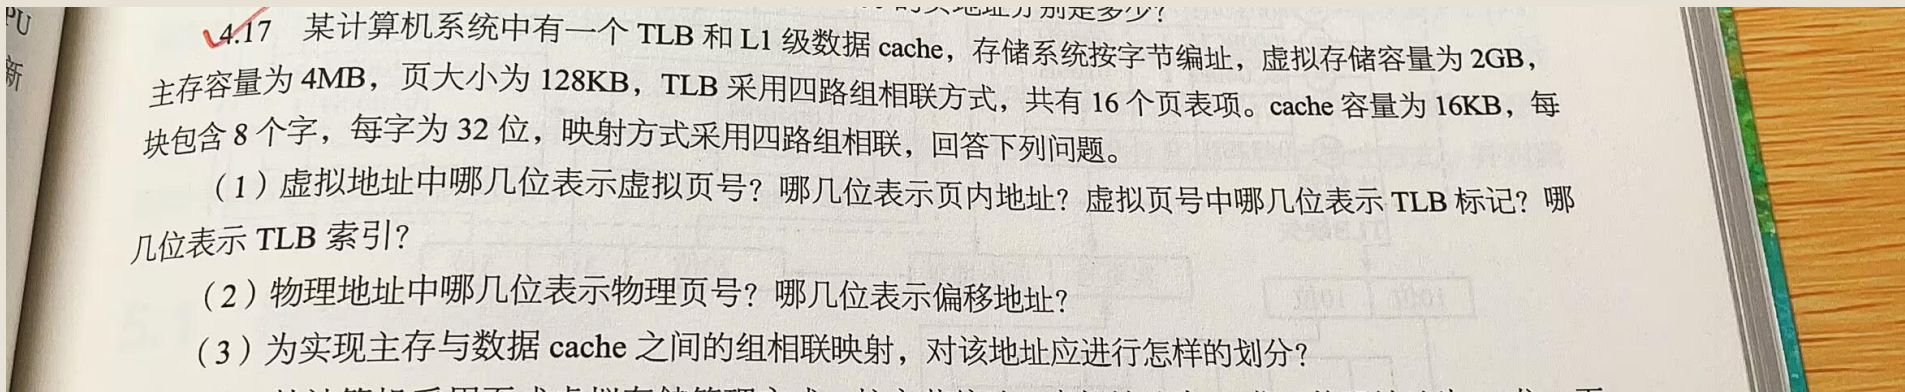 PU
新
的实地址分别是多少？
4.17 某计算机系统中有一个 TLB 和 L1 级数据 cache，存储系统按字节编址，虚拟存储容量为 2GB，
主存容量为 4MB，页大小为 128KB，TLB 采用四路组相联方式，共有 16 个页表项。cache 容量为 16KB，每
块包含 8 个字，每字为 32 位，映射方式采用四路组相联，回答下列问题。
（1）虚拟地址中哪几位表示虚拟页号？哪几位表示页内地址？虚拟页号中哪几位表示 TLB 标记？哪
几位表示 TLB 索引？
（2）物理地址中哪几位表示物理页号？哪几位表示偏移地址？
（3）为实现主存与数据 cache 之间的组相联映射，对该地址应进行怎样的划分？